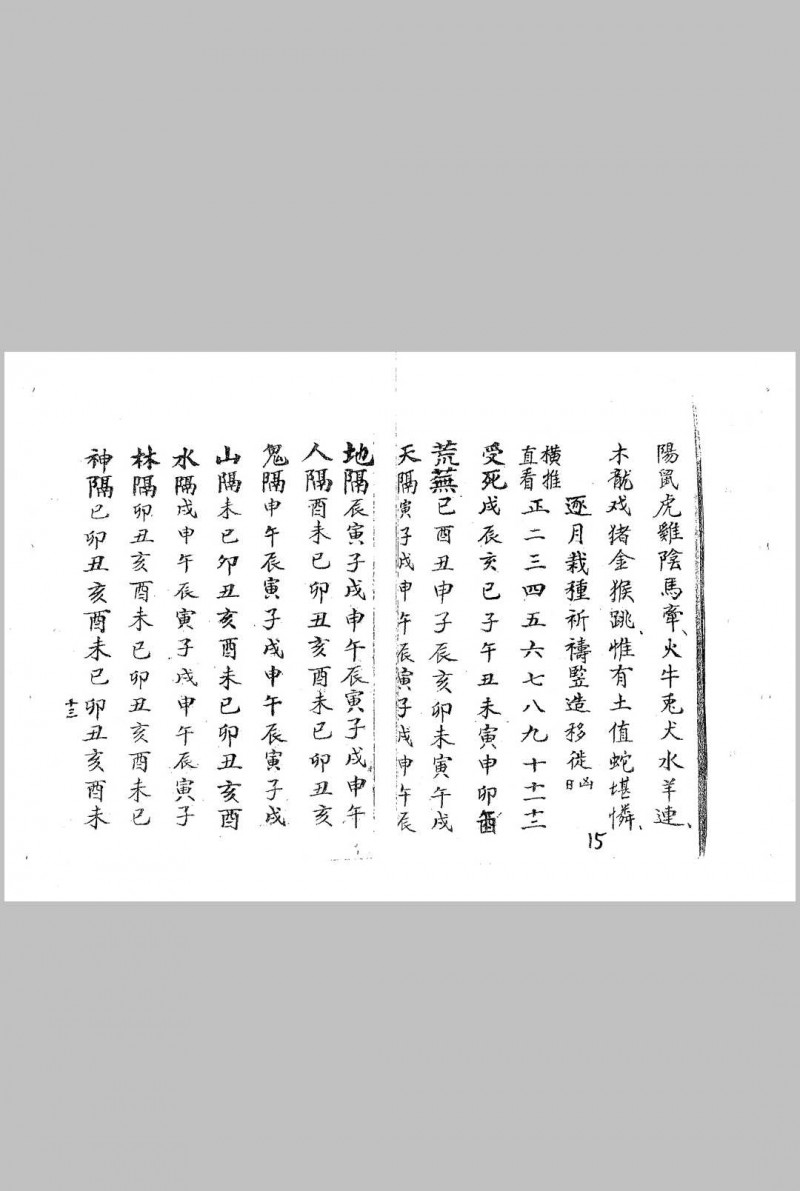 陽鼠虎雞陰馬牽、火牛兎犬水羊連、
木龍戏猪金猴跳、惟有土值蛇堪憐、
逐月栽種祈禱竪造移徙凶日
橫推直看正二三四五六七八九十十一十二
受死戌辰亥巳子午丑未寅申卯酉
荒蕪巳酉丑申子辰亥卯未寅午戌
天隔寅子戌申午辰寅子戌申午辰
地隔辰寅子戌申午辰寅子戌申午
人隔酉未巳卯丑亥酉未巳卯丑亥
鬼隔申午辰寅子戌申午辰寅子戌
山隔未巳卯丑亥酉未巳卯丑亥酉
水隔戌申午辰寅子戌申午辰寅子
林隔卯丑亥酉未巳卯丑亥酉未巳
神隔巳卯丑亥酉未巳卯丑亥酉未
十三
15